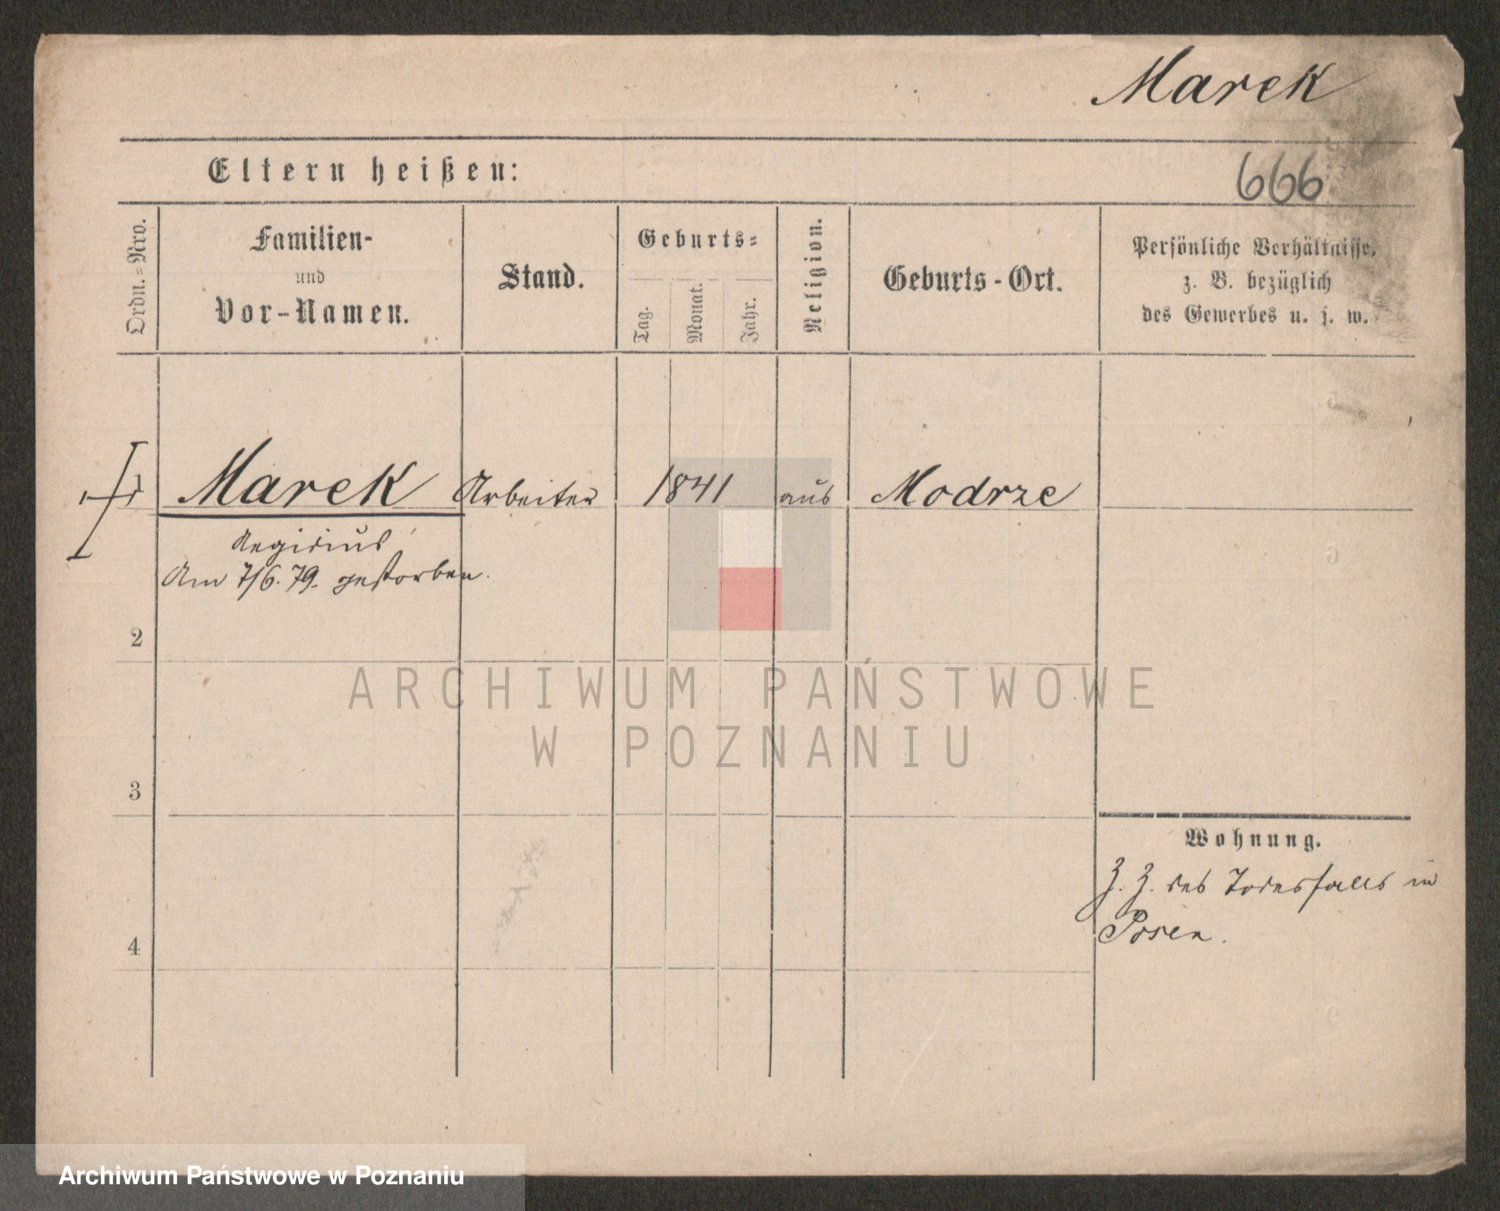 Marek
Eltern heißen:
666
Ordn.=Nro.
Familien-
und
Vor-Namen.
Stand.
Geburts=
Tag.
Monat.
Jahr.
Religion.
Geburts-Ort.
Persönliche Verhältnisse,
z. B. bezüglich
des Gewerbes u. s. w.
Marek Arbeiter 1841 aus Modrze
Aegidius
Am 7/6. 79. gestorben.
2
3
4
Wohnung.
Z. Z. des Todesfalls in
Posen.
ARCHIWUM PAŃSTWOWE
W POZNANIU
Archiwum Państwowe w Poznaniu